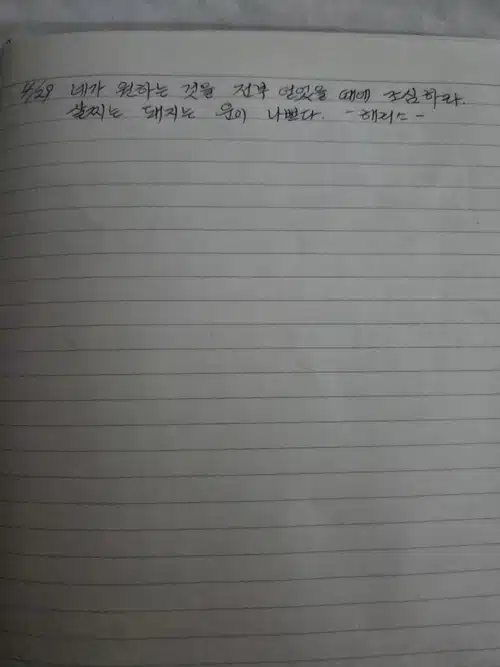 5/29 네가 원하는 것을 전부 얻었을 때에 조심하라.
살찌는 돼지는 운이 나쁘다. - 해리스 -